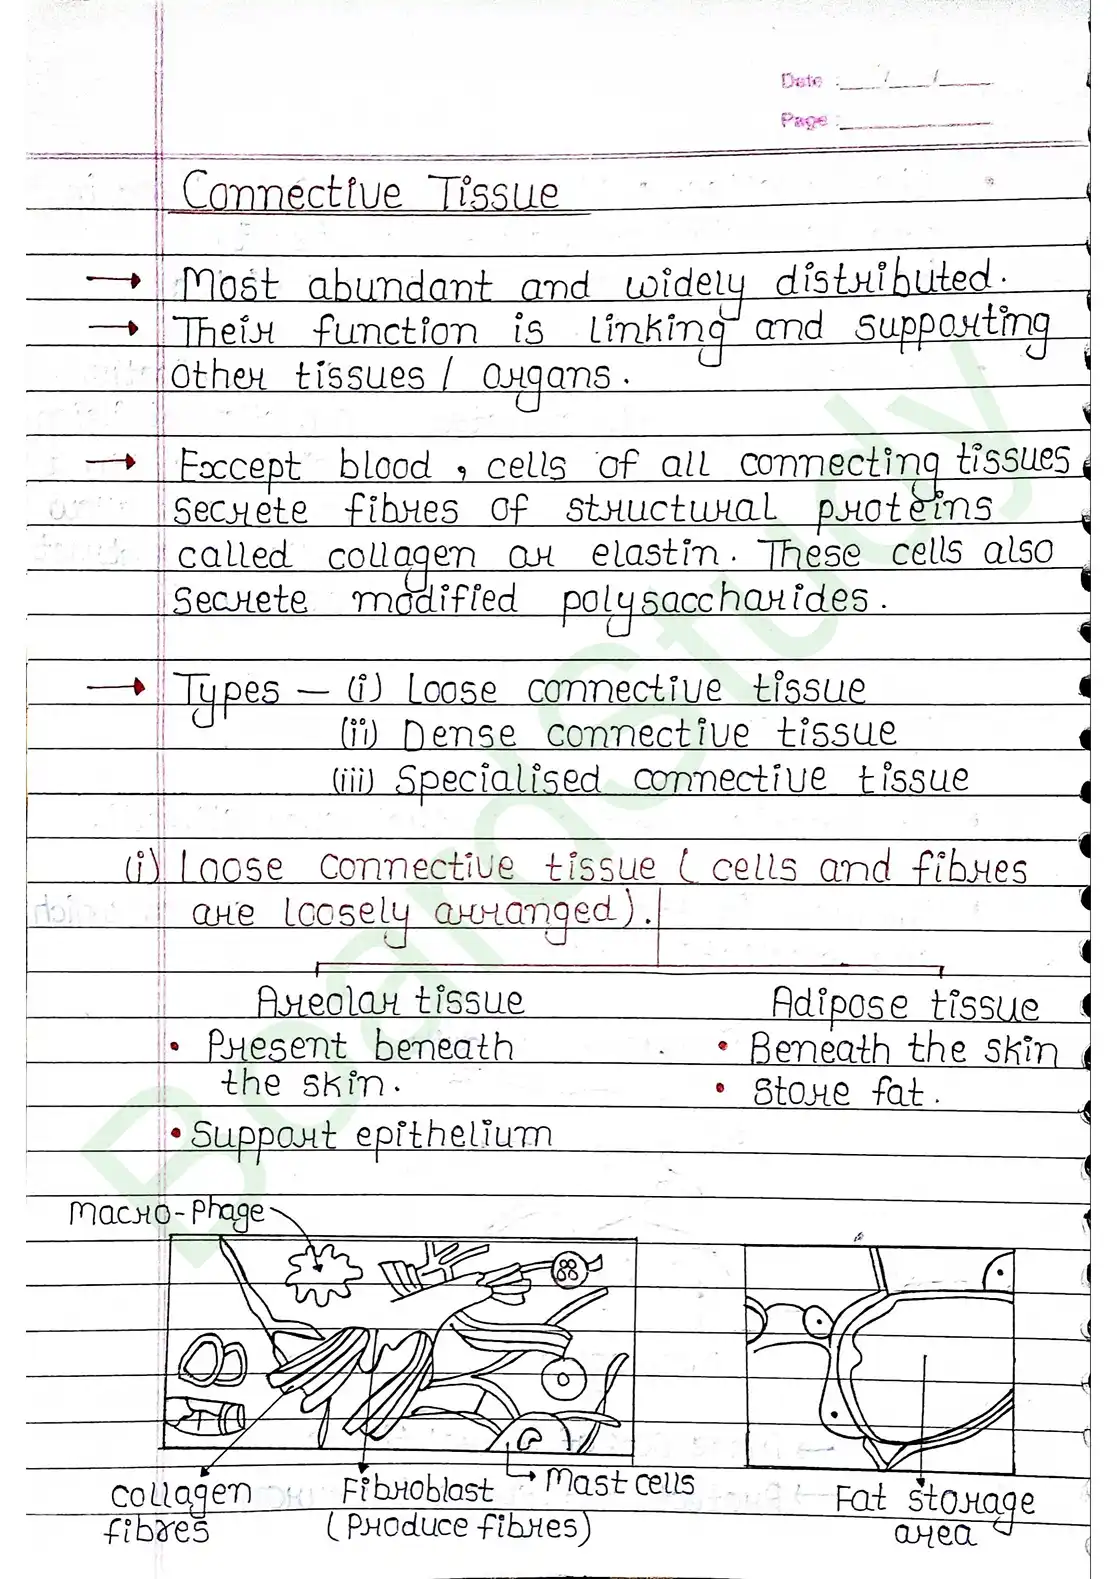 Date : __/__/__
Page : ______
Connective Tissue
→ Most abundant and widely distributed.
→ Their function is linking and supporting
other tissues / organs.
→ Except blood, cells of all connecting tissues
secrete fibres of structural proteins
called collagen or elastin. These cells also
secrete modified polysaccharides.
→ Types — (i) Loose connective tissue
(ii) Dense connective tissue
(iii) Specialised connective tissue
(i) Loose connective tissue ( cells and fibres
are loosely arranged).
Areolar tissue
• Present beneath
the skin.
• Support epithelium
Adipose tissue
• Beneath the skin
• Store fat.
Macro-Phage
collagen
fibres
Fibroblast
(Produce fibres)
Mast cells
Fat storage
area
BoardStudy